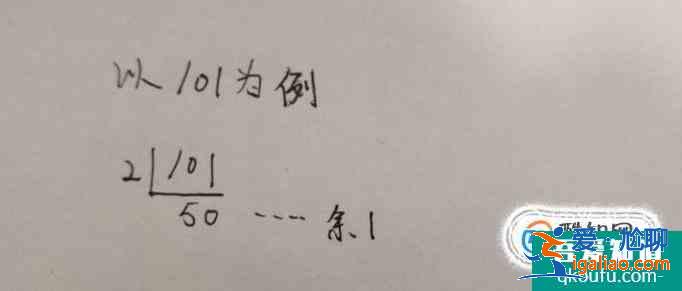 以101为例
2|101
50 ---- 余1
爱尬聊
igaliao.com
qk5oufu.com